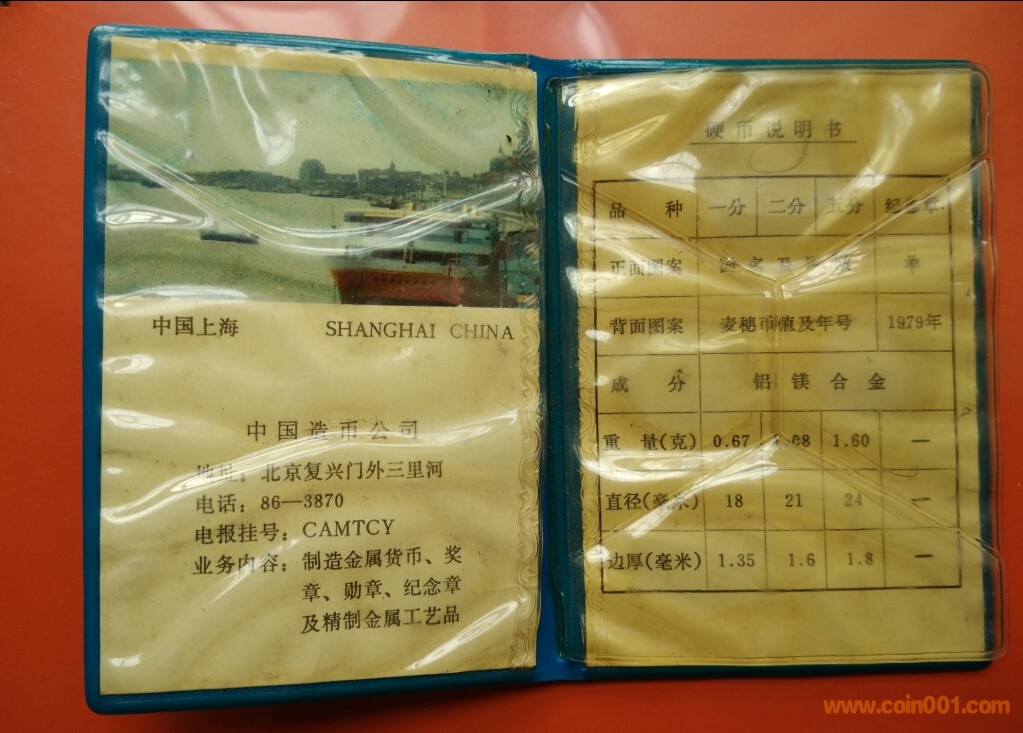 中国上海 SHANGHAI CHINA
中国造币公司
地址：北京复兴门外三里河
电话：86—3870
电报挂号：CAMTCY
业务内容：制造金属货币、奖
章、勋章、纪念章
及精制金属工艺品
硬币说明书
品 种 一分 二分 五分 纪念章
正面图案 国名及国徽 羊
背面图案 麦穗币值及年号 1979年
成 分 铝镁合金
重 量(克) 0.67 1.08 1.60 —
直径(毫米) 18 21 24 —
边厚(毫米) 1.35 1.6 1.8 —
www.coin001.com